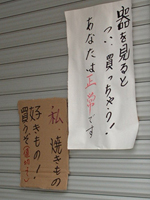 器を見ると
つい買っちゃう!
あなたは正常です
私 焼きもの
好きもの!
買うぞ